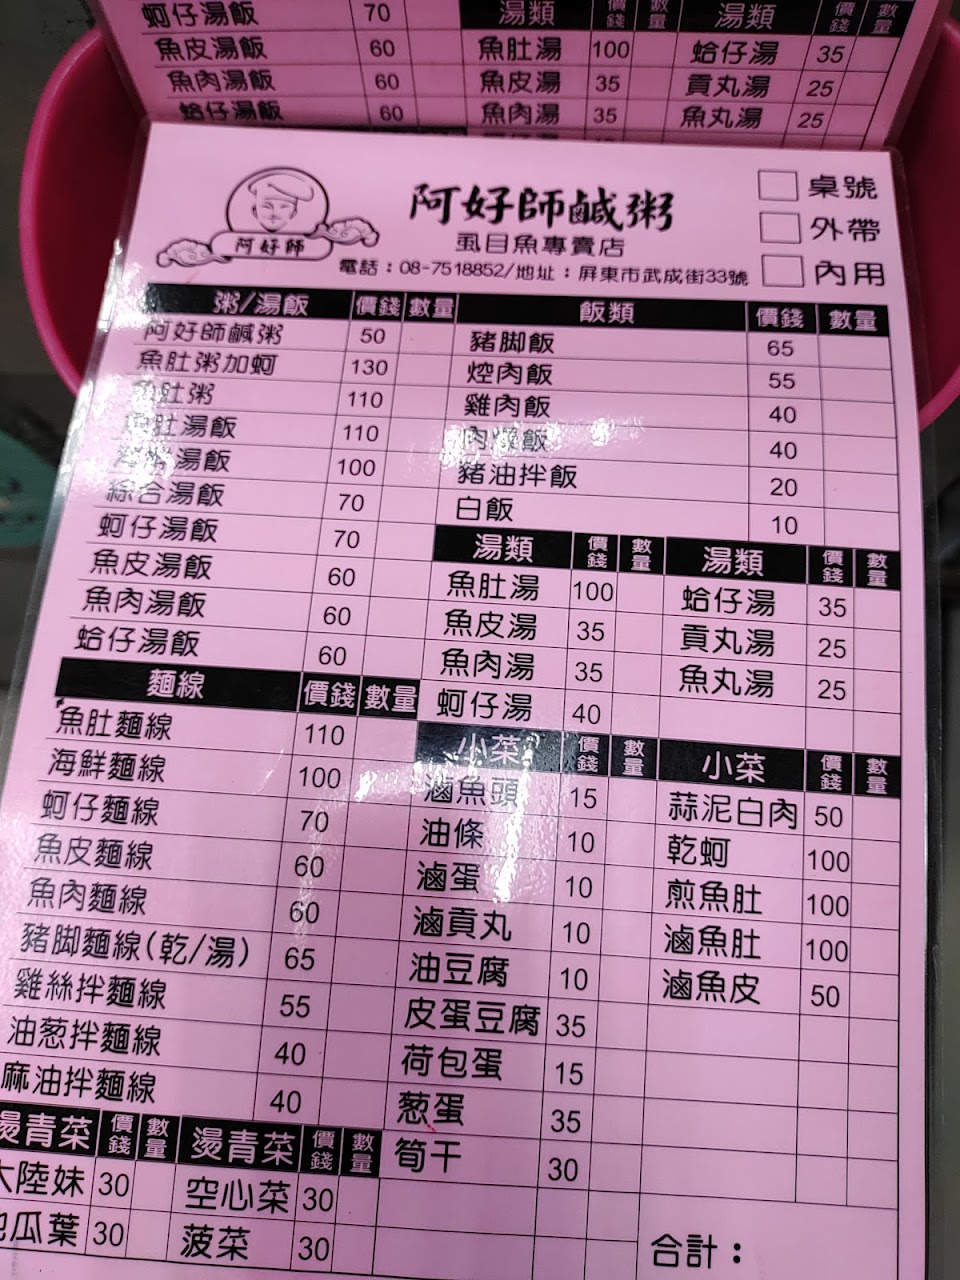 蚵仔湯飯 70 湯類 價錢 數量 湯類 價錢 數量
魚皮湯飯 60 魚肚湯 100 蛤仔湯 35
魚肉湯飯 60 魚皮湯 35 貢丸湯 25
蛤仔湯飯 60 魚肉湯 35 魚丸湯 25
阿好師
阿好師鹹粥
虱目魚專賣店
電話：08-7518852/地址：屏東市武成街33號
桌號
外帶
內用
粥/湯飯 價錢 數量
阿好師鹹粥 50
魚肚粥加蚵 130
魚肚粥 110
魚肚湯飯 110
湯飯 100
綜合湯飯 70
蚵仔湯飯 70
魚皮湯飯 60
魚肉湯飯 60
蛤仔湯飯 60
飯類 價錢 數量
豬腳飯 65
焢肉飯 55
雞肉飯 40
肉燥飯 40
豬油拌飯 20
白飯 10
湯類 價錢 數量
魚肚湯 100
魚皮湯 35
魚肉湯 35
蚵仔湯 40
湯類 價錢 數量
蛤仔湯 35
貢丸湯 25
魚丸湯 25
麵線 價錢 數量
魚肚麵線 110
海鮮麵線 100
蚵仔麵線 70
魚皮麵線 60
魚肉麵線 60
豬腳麵線(乾/湯) 65
雞絲拌麵線 55
油葱拌麵線 40
麻油拌麵線 40
小菜 價錢 數量
滷魚頭 15
油條 10
滷蛋 10
滷貢丸 10
油豆腐 10
皮蛋豆腐 35
荷包蛋 15
葱蛋 35
筍干 30
小菜 價錢 數量
蒜泥白肉 50
乾蚵 100
煎魚肚 100
滷魚肚 100
滷魚皮 50
燙青菜 價錢 數量
大陸妹 30
地瓜葉 30
燙青菜 價錢 數量
空心菜 30
菠菜 30
合計：